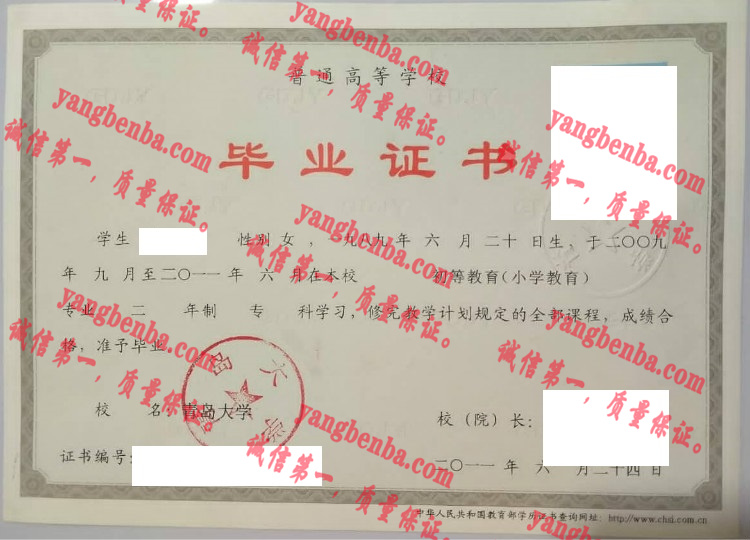 普通高等学校
毕业证书
学生 性别 女 ，一九八九年 六 月 二十 日生，于二〇〇九
年 九 月至二〇一一 年 六 月在本校 初等教育（小学教育）
专业 二 年制 专 科学习，修完教学计划规定的全部课程，成绩合
格，准予毕业
校 名 青岛大学
校（院）长：
证书编号：
二〇一一 年 六 月二十四日
中华人民共和国教育部学历证书查询网址：http://www.chsi.com.cn
yangbenba.com
诚信第一，质量保证。
yangbenba.com
诚信第一，质量保证。
yangbenba.com
诚信第一，质量保证。
yangbenba.com
诚信第一，质量保证。
yangbenba.com
诚信第一，质量保证。
yangbenba.com
诚信第一，质量保证。
yangbenba.com
诚信第一，质量保证。
yangbenba.com
诚信第一，质量保证。
yangbenba.com